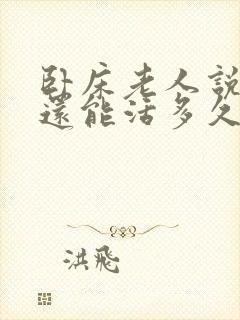 臥床老人說
還能活多久
洪飛